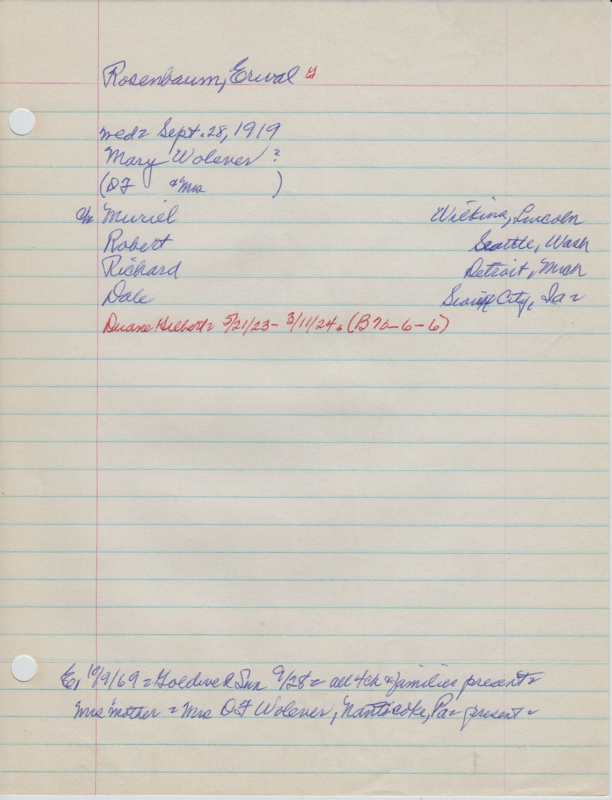 Rosenbaum, Erwal
wed= Sept. 28, 1919
Mary Wolever ?
(DF & Mrs )
ch Muriel Wilkins, Lincoln
Robert Seattle, Wash
Richard Detroit, Mich
Dale Sioux City, Ia=
Duane Hilbert= 5/21/23- 3/11/24. (B76-6-6)
E, 10/9/69= Golden Sun 9/28= all 4 ch & families present=
Mrs mother = Mrs DF Wolever, Nanticoke, Pa= present=